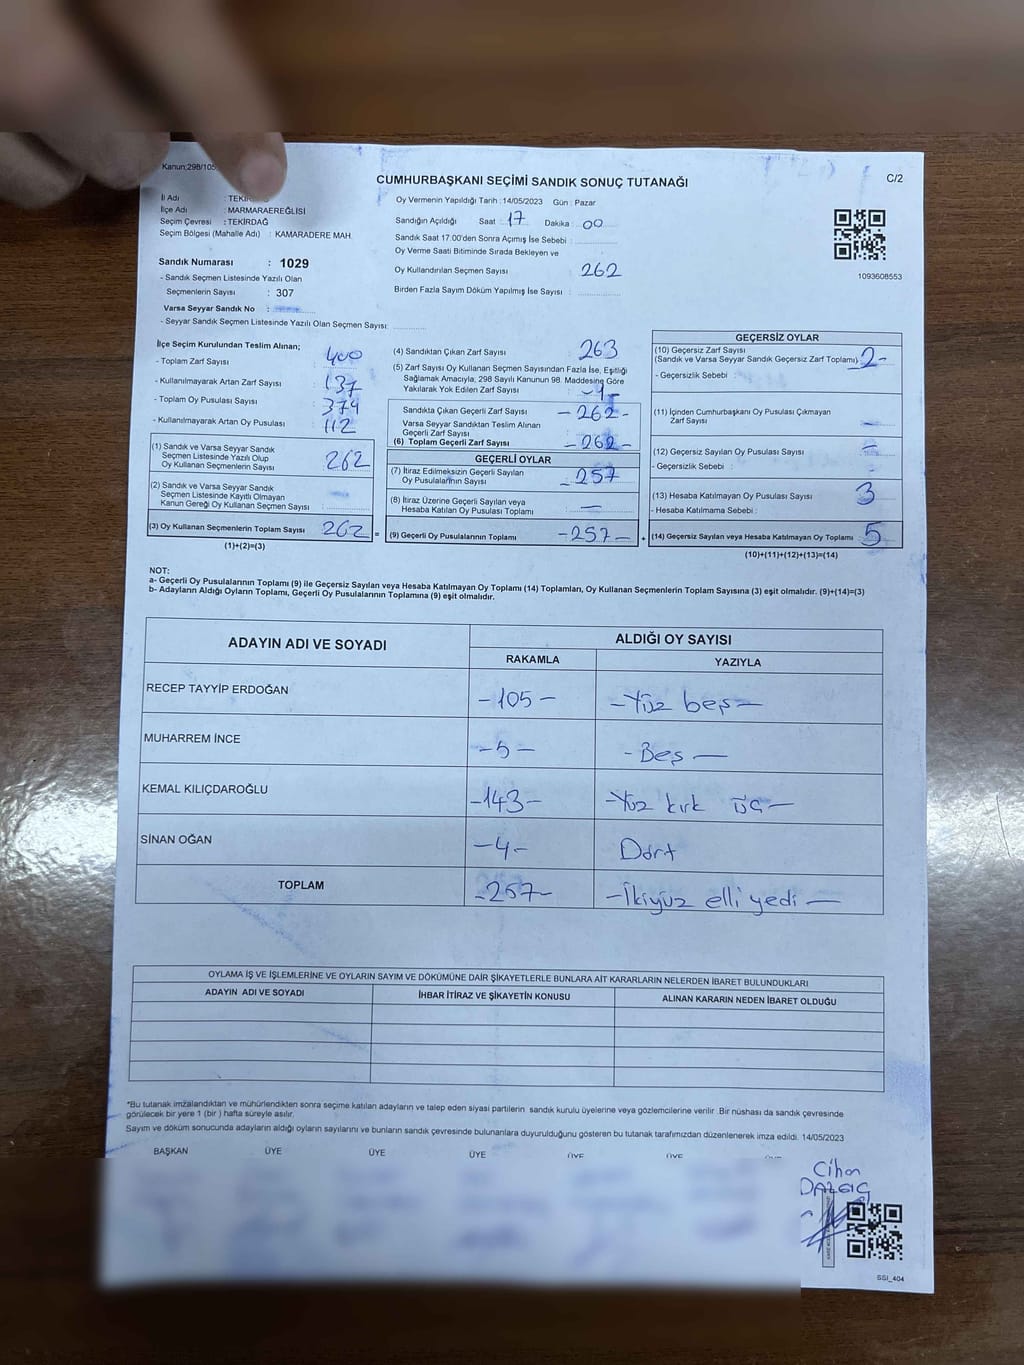 Kanun;298/105
C/2
CUMHURBAŞKANI SEÇİMİ SANDIK SONUÇ TUTANAĞI
İl Adı : TEKİRDAĞ
İlçe Adı : MARMARAEREĞLİSİ
Seçim Çevresi : TEKİRDAĞ
Seçim Bölgesi (Mahalle Adı) : KAMARADERE MAH.
Oy Vermenin Yapıldığı Tarih : 14/05/2023 Gün : Pazar
Sandığın Açıldığı Saat : 17 Dakika : 00
Sandık Saat 17.00'den Sonra Açımış İse Sebebi :
Oy Verme Saati Bitiminde Sırada Bekleyen ve
Oy Kullandırılan Seçmen Sayısı : 262
Birden Fazla Sayım Döküm Yapılmış İse Sayısı :
1093608553
Sandık Numarası : 1029
- Sandık Seçmen Listesinde Yazılı Olan
Seçmenlerin Sayısı : 307
Varsa Seyyar Sandık No :
- Seyyar Sandık Seçmen Listesinde Yazılı Olan Seçmen Sayısı:
İlçe Seçim Kurulundan Teslim Alınan;
- Toplam Zarf Sayısı : 400
- Kullanılmayarak Artan Zarf Sayısı : 137
- Toplam Oy Pusulası Sayısı : 374
- Kullanılmayarak Artan Oy Pusulası : 112
(1) Sandık ve Varsa Seyyar Sandık
Seçmen Listesinde Yazılı Olup
Oy Kullanan Seçmenlerin Sayısı : 262
(2) Sandık ve Varsa Seyyar Sandık
Seçmen Listesinde Kayıtlı Olmayan
Kanun Gereği Oy Kullanan Seçmen Sayısı :
(3) Oy Kullanan Seçmenlerin Toplam Sayısı : 262
(1)+(2)=(3)
(4) Sandıktan Çıkan Zarf Sayısı : 263
(5) Zarf Sayısı Oy Kullanan Seçmen Sayısından Fazla İse, Eşitliği
Sağlamak Amacıyla, 298 Sayılı Kanunun 98. Maddesine Göre
Yakılarak Yok Edilen Zarf Sayısı : -1-
Sandıkta Çıkan Geçerli Zarf Sayısı : -262-
Varsa Seyyar Sandıktan Teslim Alınan
Geçerli Zarf Sayısı :
(6) Toplam Geçerli Zarf Sayısı : -262-
GEÇERLİ OYLAR
(7) İtiraz Edilmeksizin Geçerli Sayılan
Oy Pusulalarının Sayısı : -257
(8) İtiraz Üzerine Geçerli Sayılan veya
Hesaba Katılan Oy Pusulası Toplamı : —
= (9) Geçerli Oy Pusulalarının Toplamı -257-
GEÇERSİZ OYLAR
(10) Geçersiz Zarf Sayısı
(Sandık ve Varsa Seyyar Sandık Geçersiz Zarf Toplamı) 2-
- Geçersizlik Sebebi :
(11) İçinden Cumhurbaşkanı Oy Pusulası Çıkmayan
Zarf Sayısı : —
(12) Geçersiz Sayılan Oy Pusulası Sayısı : -
- Geçersizlik Sebebi :
(13) Hesaba Katılmayan Oy Pusulası Sayısı : 3
- Hesaba Katılmama Sebebi :
+ (14) Geçersiz Sayılan veya Hesaba Katılmayan Oy Toplamı : 5
(10)+(11)+(12)+(13)=(14)
NOT:
a- Geçerli Oy Pusulalarının Toplamı (9) ile Geçersiz Sayılan veya Hesaba Katılmayan Oy Toplamı (14) Toplamları, Oy Kullanan Seçmenlerin Toplam Sayısına (3) eşit olmalıdır. (9)+(14)=(3)
b- Adayların Aldığı Oyların Toplamı, Geçerli Oy Pusulalarının Toplamına (9) eşit olmalıdır.
ADAYIN ADI VE SOYADI ALDIĞI OY SAYISI
RAKAMLA YAZIYLA
RECEP TAYYİP ERDOĞAN -105- -Yüz beş-
MUHARREM İNCE -5- -Beş-
KEMAL KILIÇDAROĞLU -143- -Yüz kırk üç-
SİNAN OĞAN -4- Dört
TOPLAM -257- -İkiyüz elli yedi-
OYLAMA İŞ VE İŞLEMLERİNE VE OYLARIN SAYIM VE DÖKÜMÜNE DAİR ŞİKAYETLERLE BUNLARA AİT KARARLARIN NELERDEN İBARET BULUNDUKLARI
ADAYIN ADI VE SOYADI İHBAR İTİRAZ VE ŞİKAYETİN KONUSU ALINAN KARARIN NEDEN İBARET OLDUĞU
*Bu tutanak imzalandıktan ve mühürlendikten sonra seçime katılan adayların ve talep eden siyasi partilerin sandık kurulu üyelerine veya gözlemcilerine verilir. Bir nüshası da sandık çevresinde
görülecek bir yere 1 (bir) hafta süreyle asılır.
Sayım ve döküm sonucunda adayların aldığı oyların sayılarını ve bunların sandık çevresinde bulunanlara duyurulduğunu gösteren bu tutanak tarafımızdan düzenlenerek imza edildi. 14/05/2023
BAŞKAN ÜYE ÜYE ÜYE ÜYE ÜYE
Cihan
SSI_404